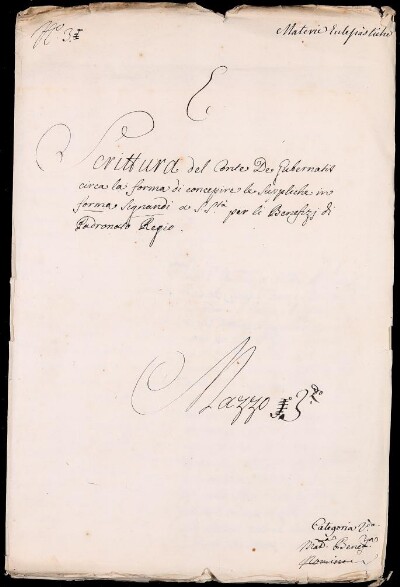 N.º 3.
Materie Eccłesiãstiche
E
Scrittura del Conte De Gubernatis
circa la forma di concepire le Suppliche in
forma Signandi a S. S.tà per li Benefizj di
Padronato Regio.
Mazzo 3.do
Categoria 2.da
Mat.e Benef.
Nomine